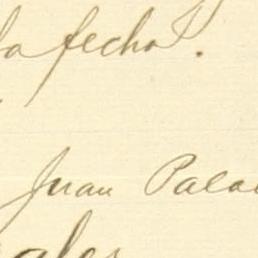 la fecha.
Juan Pala
ales